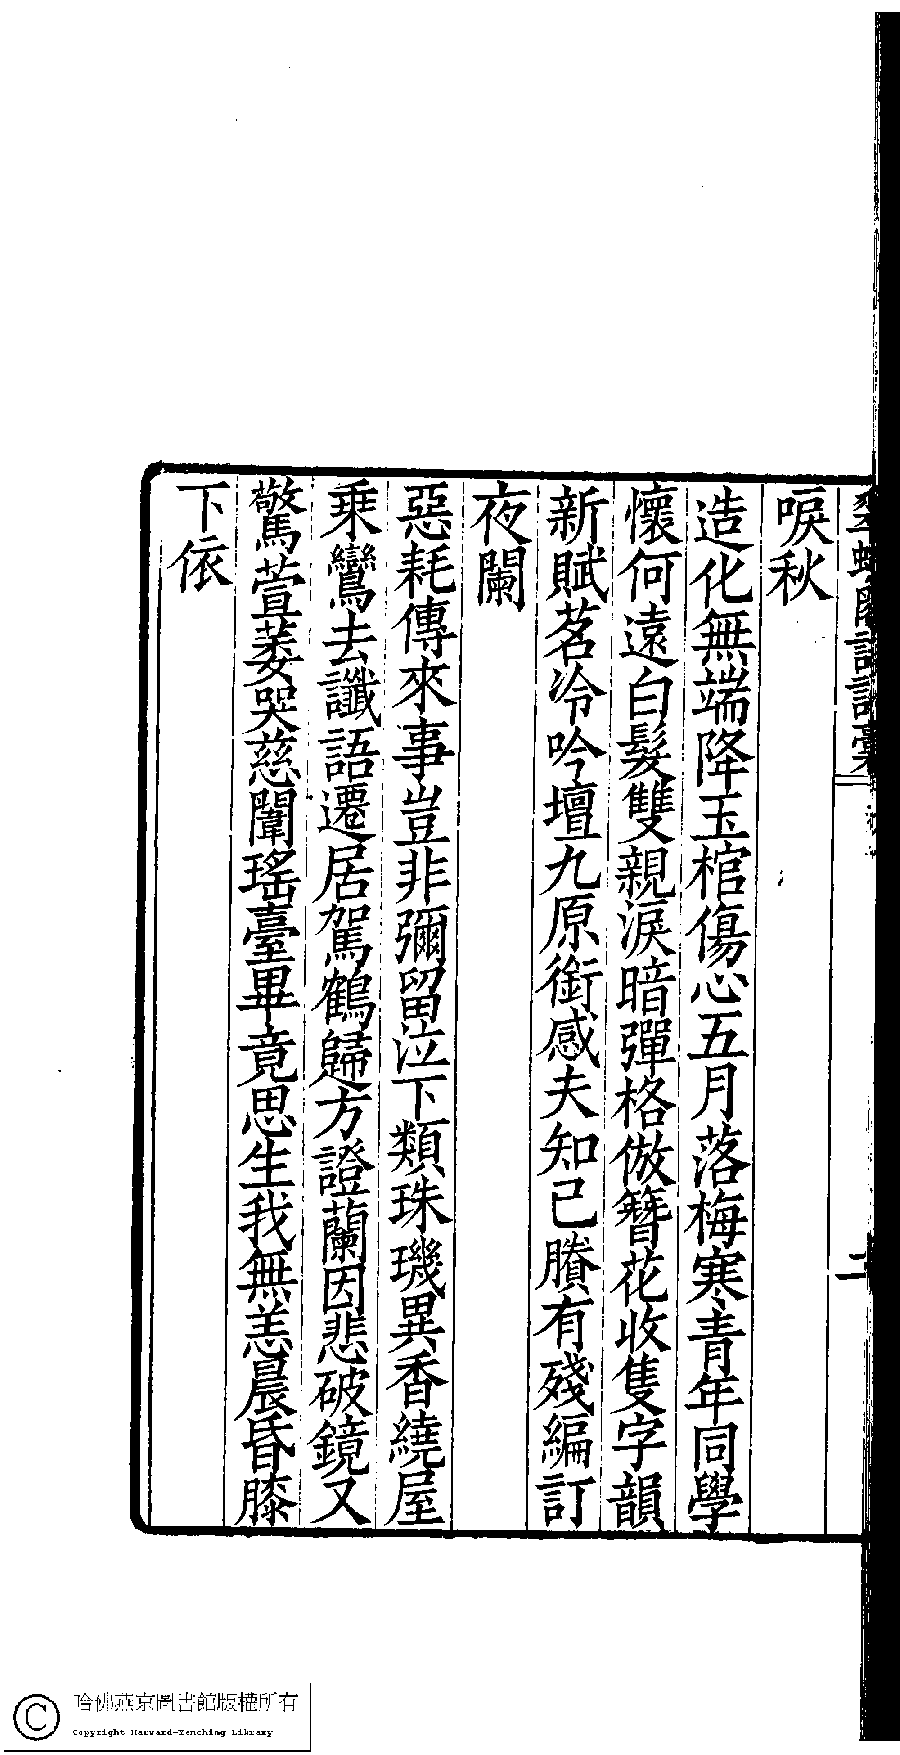 唳秋
造化無端降玉棺傷心五月落梅寒青年同學
懷何遠白髮雙親淚暗彈格倣簪花收隻字韻
新賦茗冷吟壇九原銜感夫知己賸有殘編訂
夜闌
惡耗傳來事豈非彌留泣下類珠璣異香繞屋
乗鸞去讖語遷居駕鶴歸方證蘭因悲破鏡又
驚萱萎哭慈闈瑤臺畢竟思生我無恙晨昏膝
下依
哈佛燕京圖書館版權所有
Copyright Harvard-Yenching Library